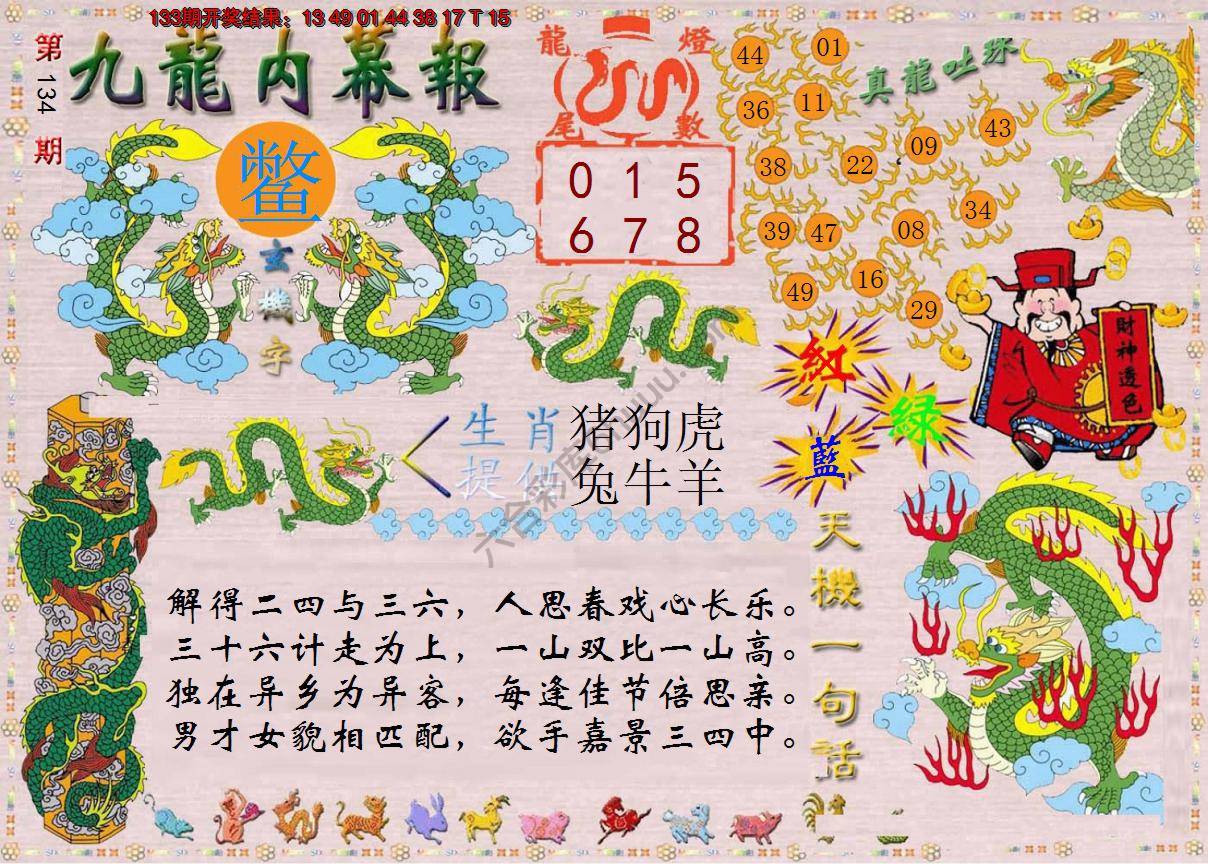 133期开奖结果：13 49 01 44 38 17 T 15
第134期
九龍内幕報
鳖
玄機字
龍燈
尾數
0 1 5
6 7 8
真龍吐珠
44
01
36
11
43
09
38
22
34
39
47
08
16
49
29
財神透色
紅
綠
藍
生肖
提供
猪狗虎
兔牛羊
天機一句话
解得二四与三六，人思春戏心长乐。
三十六计走为上，一山双比一山高。
独在异乡为异客，每逢佳节倍思亲。
男才女貌相匹配，欲手嘉景三四中。